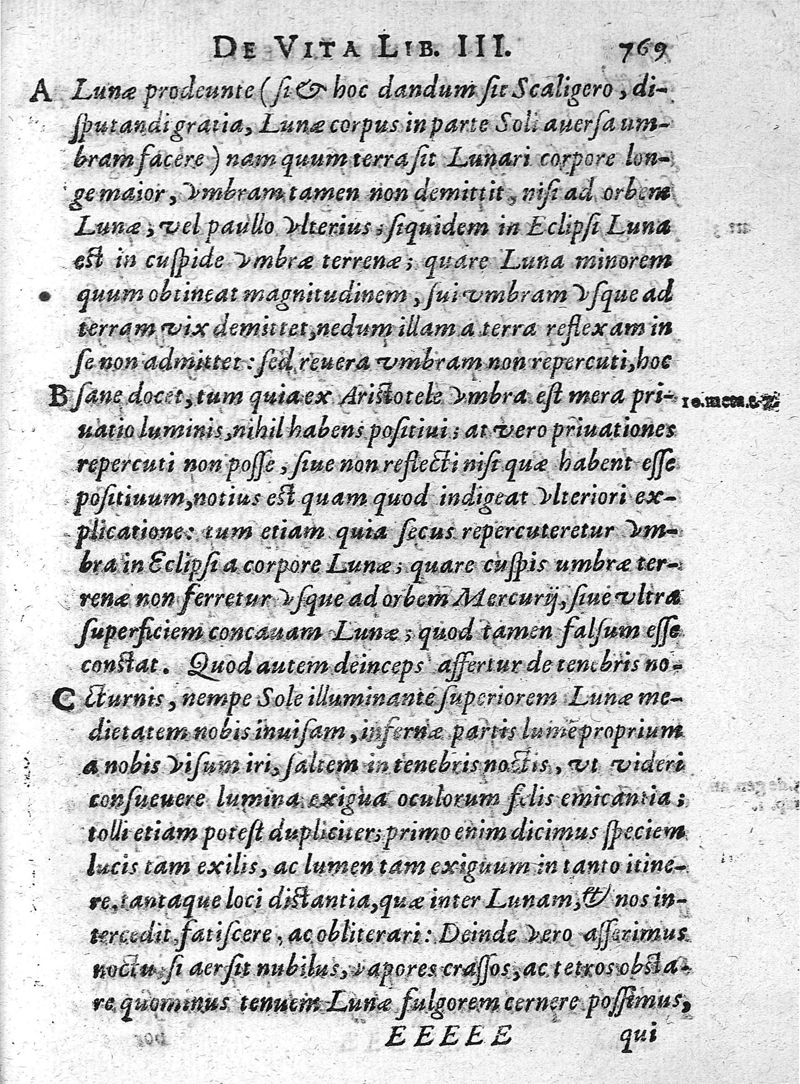 DE VITA LIB. III. 769
A Lunæ prodeunte (si & hoc dandum sit Scaligero, di-
sputandi gratia, Lunæ corpus in parte Soli auersa um-
bram facere) nam quum terra sit Lunari corpore lon-
ge maior, vmbram tamen non demittit, nisi ad orbem
Lunæ, vel paullo vlterius; siquidem in Eclipsi Luna
est in cuspide vmbræ terrenæ; quare Luna minorem
quum obtineat magnitudinem, sui vmbram vsque ad
terram vix demittet, nedum illam a terra reflexam in
se non admittet: sed reuera vmbram non repercuti, hoc
B sane docet, tum quia ex Aristotele vmbra est mera pri-
uatio luminis, nihil habens positiui; at vero priuationes
repercuti non posse, siue non reflecti nisi quæ habent esse
positiuum, notius est quam quod indigeat vlteriori ex-
plicatione: tum etiam quia secus repercuteretur vm-
bra in Eclipsi a corpore Lunæ; quare cuspis umbræ ter-
renæ non ferretur vsque ad orbem Mercurij, siue vltra
superficiem concauam Lunæ; quod tamen falsum esse
constat. Quod autem deinceps affertur de tenebris no-
C cturnis, nempe Sole illuminante superiorem Lunæ me-
dietatem nobis inuisam, infernæ partis lumē proprium
a nobis visum iri, saltem in tenebris noctis, vt videri
consueuere lumina exigua oculorum felis emicantia;
tolli etiam potest dupliciter; primo enim dicimus speciem
lucis tam exilis, ac lumen tam exiguum in tanto itine-
re, tantaque loci distantia, quæ inter Lunam, & nos in-
tercedit, fatiscere, ac obliterari: Deinde vero asserimus
noctu, si aer sit nubilus, vapores crassos, ac tetros obsta-
re quominus tenuem Lunæ fulgorem cernere possimus,
EEEEE qui